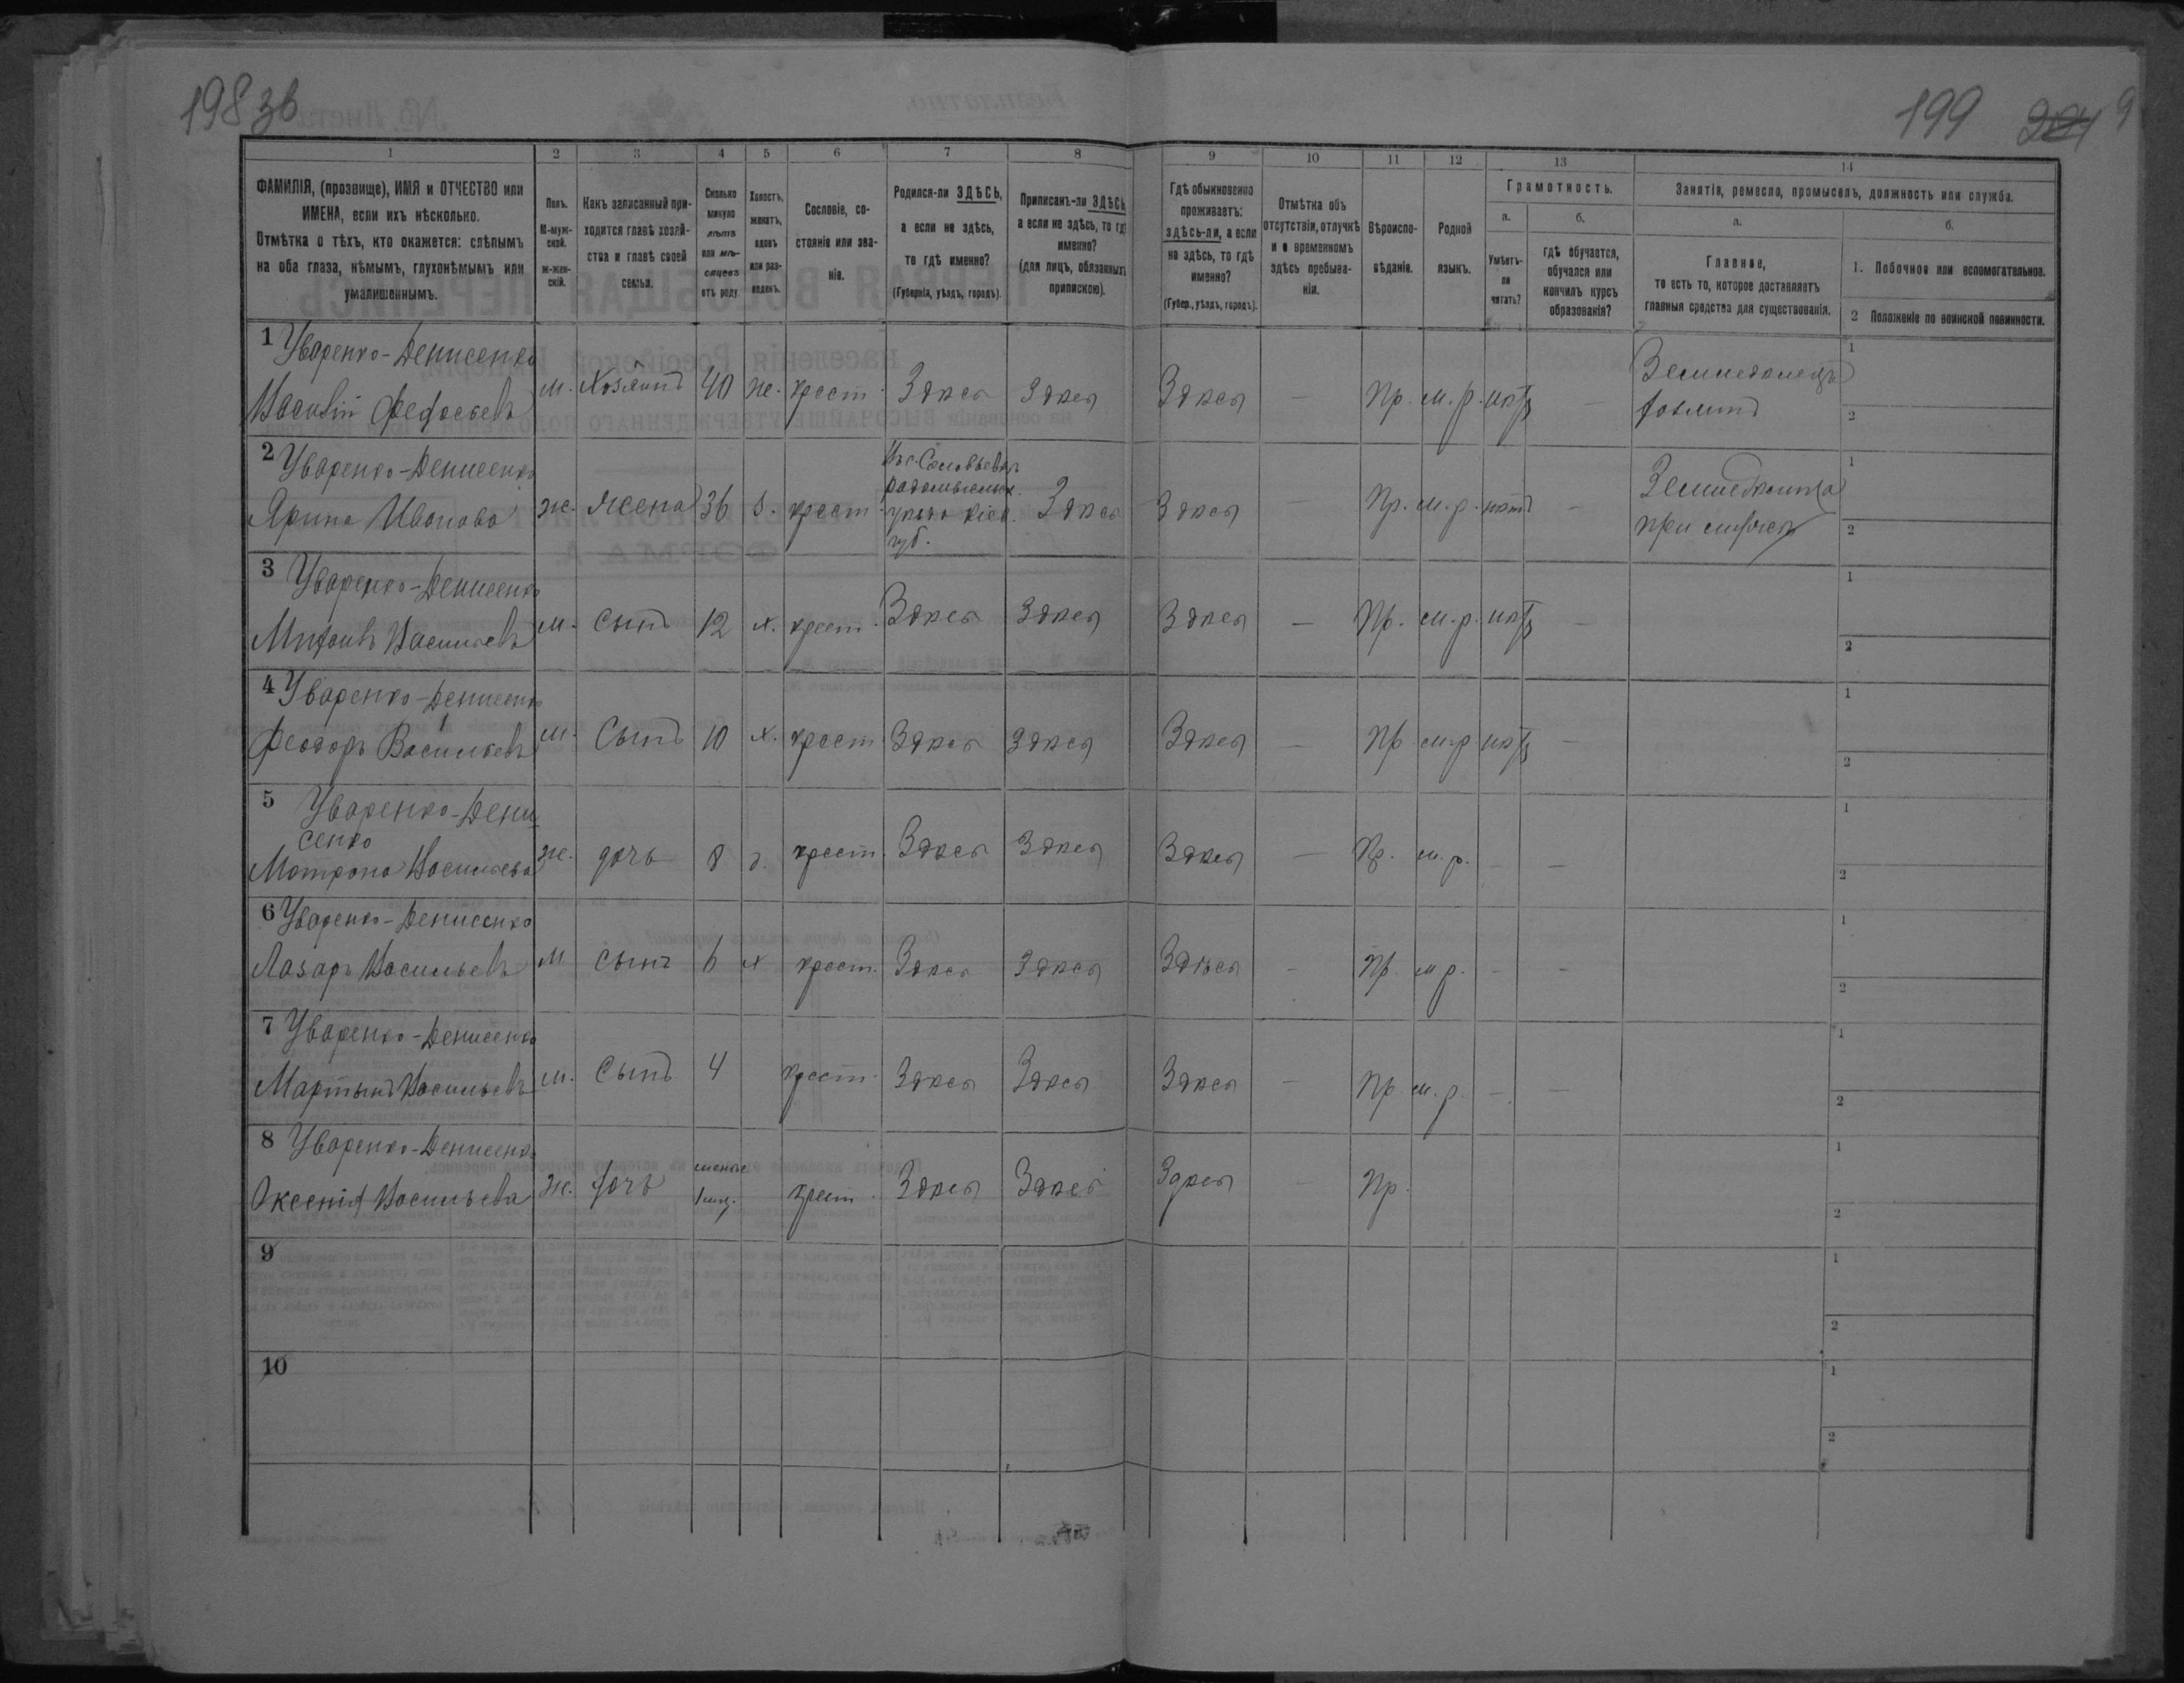 198 зв
199
9
1
2
3
4
5
6
7
8
9
10
11
12
13
14
ФАМИЛІЯ, (прозвище), ИМЯ и ОТЧЕСТВО или
ИМЕНА, если ихъ нѣсколько.
Отмѣтка о тѣхъ, кто окажется: слѣпымъ
на оба глаза, нѣмымъ, глухонѣмымъ или
умалишеннымъ.
Полъ.
М-муж-
ской.
ж-жен-
скій.
Какъ записанный при-
ходится главѣ хозяй-
ства и главѣ своей
семьи.
Сколько
минуло
лѣтъ
или мѣ-
сяцевъ
отъ роду
Холостъ,
женатъ,
вдовъ
или раз-
веденъ.
Сословіе, со-
стояніе или зва-
ніе.
Родился-ли ЗДѢСЬ,
а если не здѣсь,
то гдѣ именно?
(Губернія, уѣздъ, городъ).
Приписанъ-ли ЗДѢСЬ
а если не здѣсь, то гдѣ
именно?
(для лицъ, обязанныхъ
припискою).
Гдѣ обыкновенно
проживаетъ:
здѣсь-ли, а если
не здѣсь, то гдѣ
именно?
(Губер., уѣздъ, городъ).
Отмѣтка объ
отсутствіи, отлучкѣ
и о временномъ
здѣсь пребыва-
ніи.
Вѣроиспо-
вѣданіе.
Родной
языкъ.
Грамотность.
а.
Умѣетъ-
ли
читать?
б.
гдѣ обучается,
обучался или
кончилъ курсъ
образованія?
Занятіе, ремесло, промыселъ, должность или служба.
а.
Главное,
то есть то, которое доставляетъ
главныя средства для существованія.
б.
1. Побочное или вспомогательное.
2 Положеніе по воинской повинности.
1 Уваренко-Денисенко
Василій Федосѣевъ м. Хозяинъ 40 ж. крест. Здѣсь Здѣсь Здѣсь — Пр. м.р. нѣтъ —
1
2
2 Уваренко-Денисенко
Ярина Иванова ж. Жена 36 з. крест.
губ.
Здѣсь Здѣсь — Пр. м.р. нѣтъ —
1
2
3 Уваренко-Денисенко
Васильевъ м. Сынъ 12 х. крест. Здѣсь Здѣсь Здѣсь — Пр. м.р. нѣтъ —
1
2
4 Уваренко-Денисенко
Феодоръ Васильевъ м. Сынъ 10 х. крест Здѣсь Здѣсь Здѣсь — Пр м.р нѣтъ —
1
2
5 Уваренко-Дени
сенко
Матрона Васильева ж. дочь 8 д. крест. Здѣсь Здѣсь Здѣсь — Пр. м.р. — —
1
2
6 Уваренко-Денисенко
Лазарь Васильевъ м сынъ 6 х крест. Здѣсь Здѣсь Здѣсь — Пр. м р. — —
1
2
7 Уваренко-Денисенко
Мартынъ Васильевъ м. Сынъ 4 крест. Здѣсь Здѣсь Здѣсь — Пр. м.р. — —
1
2
8 Уваренко-Денисенко
Оксенія Васильева ж. дочь менѣе
1 мѣс.
крест. Здѣсь Здѣсь Здѣсь — Пр.
1
2
9
1
2
10
1
2